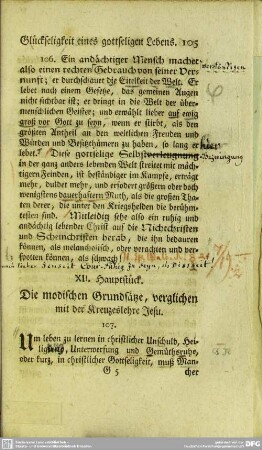 Glückseligkeit eines gottseligen Lebens. 105
106. Ein andächtiger Mensch machet
also einen rechten Gebrauch von seiner Ver-
nunft; er durchschauet die Eitelkeit der Welt. Er
lebet nach einem Gesetze, das gemeinen Augen
nicht sichtbar ist; er dringt in die Welt der über-
menschlichen Geister; und erwählt lieber auf ewig
groß vor Gott zu seyn, wenn er stirbt, als den
größten Antheil an den weltlichen Freuden und
Würden und Besitzthümern zu haben, so lang er hier
lebet. Diese gottselige Selbstverleugnung
in der ganz anders lebenden Welt streitet mit mäch-
tigern Feinden, ist beständiger im Kampfe, erträgt
mehr, duldet mehr, und erfodert größern oder doch
wenigstens dauerhaftern Muth, als die großen Tha-
ten derer, die unter den Kriegshelden die berühm-
testen sind. Mitleidig sehe also ein ruhig und
andächtig lebender Christ auf die Nichtchristen
und Scheinchristen herab, die ihn bedauren
können, als melancholisch, oder verachten und ver-
spotten können, als schwach
XII. Hauptstück.
Die modischen Grundsätze, verglichen
mit der Kreuzeslehre Jesu.
107.
Um leben zu lernen in christlicher Unschuld, Hei-
ligung, Unterwerfung und Gemüthsruhe,
oder kurz, in christlicher Gottseligkeit, muß Man-
G 5 cher